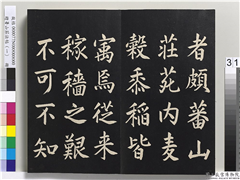 者頗蕃山
莊苑内麦
穀黍稻皆
寓焉從来
稼穡之艱
不可不知